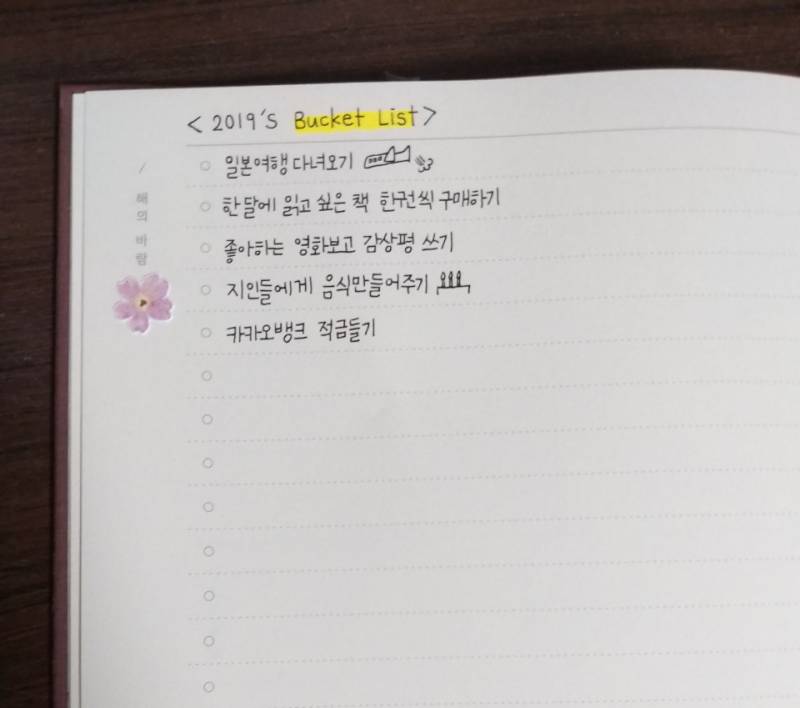 < 2019's Bucket List >
일본여행 다녀오기
한달에 읽고 싶은 책 한권씩 구매하기
좋아하는 영화보고 감상평 쓰기
지인들에게 음식만들어주기
카카오뱅크 적금들기
/ 해의 바람